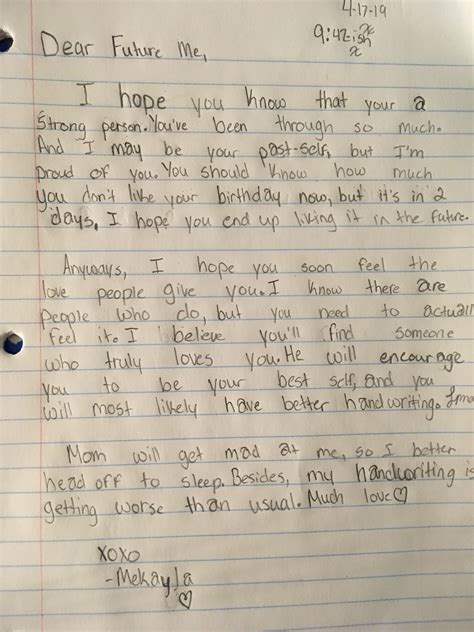 4-17-19
9:42ish
Dear Future Me,
I hope you know that your a
strong person. You've been through so much.
And I may be your past-self, but I'm
proud of you. You should know how much
you don't like your birthday now, but it's in 2
days. I hope you end up liking it in the future.
Anyways, I hope you soon feel the
love people give you. I know there are
people who do, but you need to actuall
feel it. I believe you'll find someone
who truly loves you. He will encourage
you to be your best self, and you
will most likely have better handwriting.
Mom will get mad at me, so I better
head off to sleep. Besides, my handwriting is
getting worse than usual. Much love♡
XOXO
-Mekayla
♡